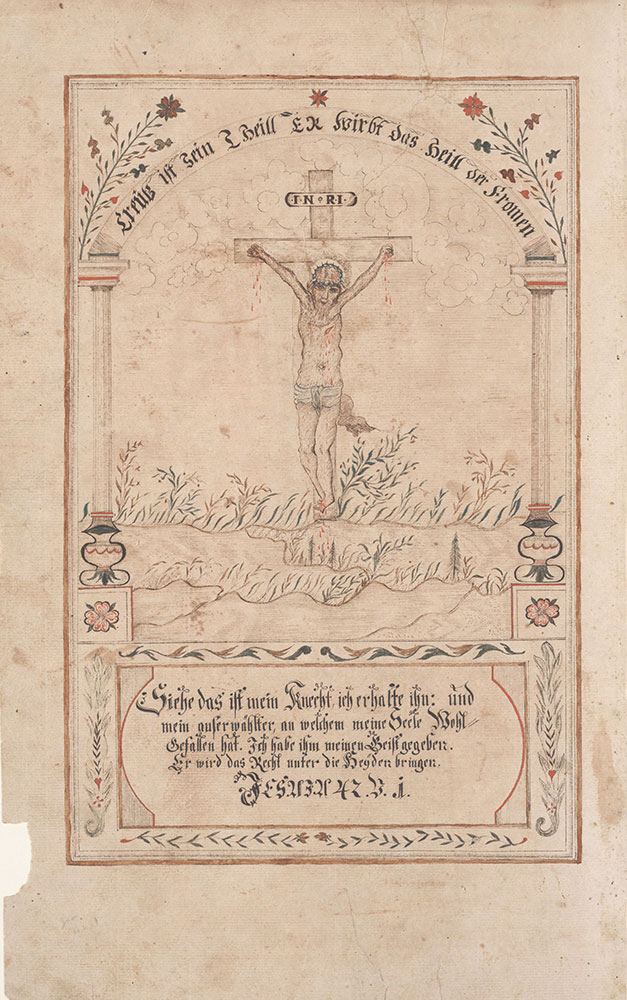 Creütz ist sein Theill ER wirbt das Heill der Fromen
I·N·R·I·
Siehe das ist mein Knecht, ich erhalte ihn: und
mein auserwählter, an welchem meine Seele Wohl
Gefallen hat. Ich habe ihm meinen Geist gegeben.
Er wird das Recht unter die Heyden bringen.
JESAIA 42. V. 1.